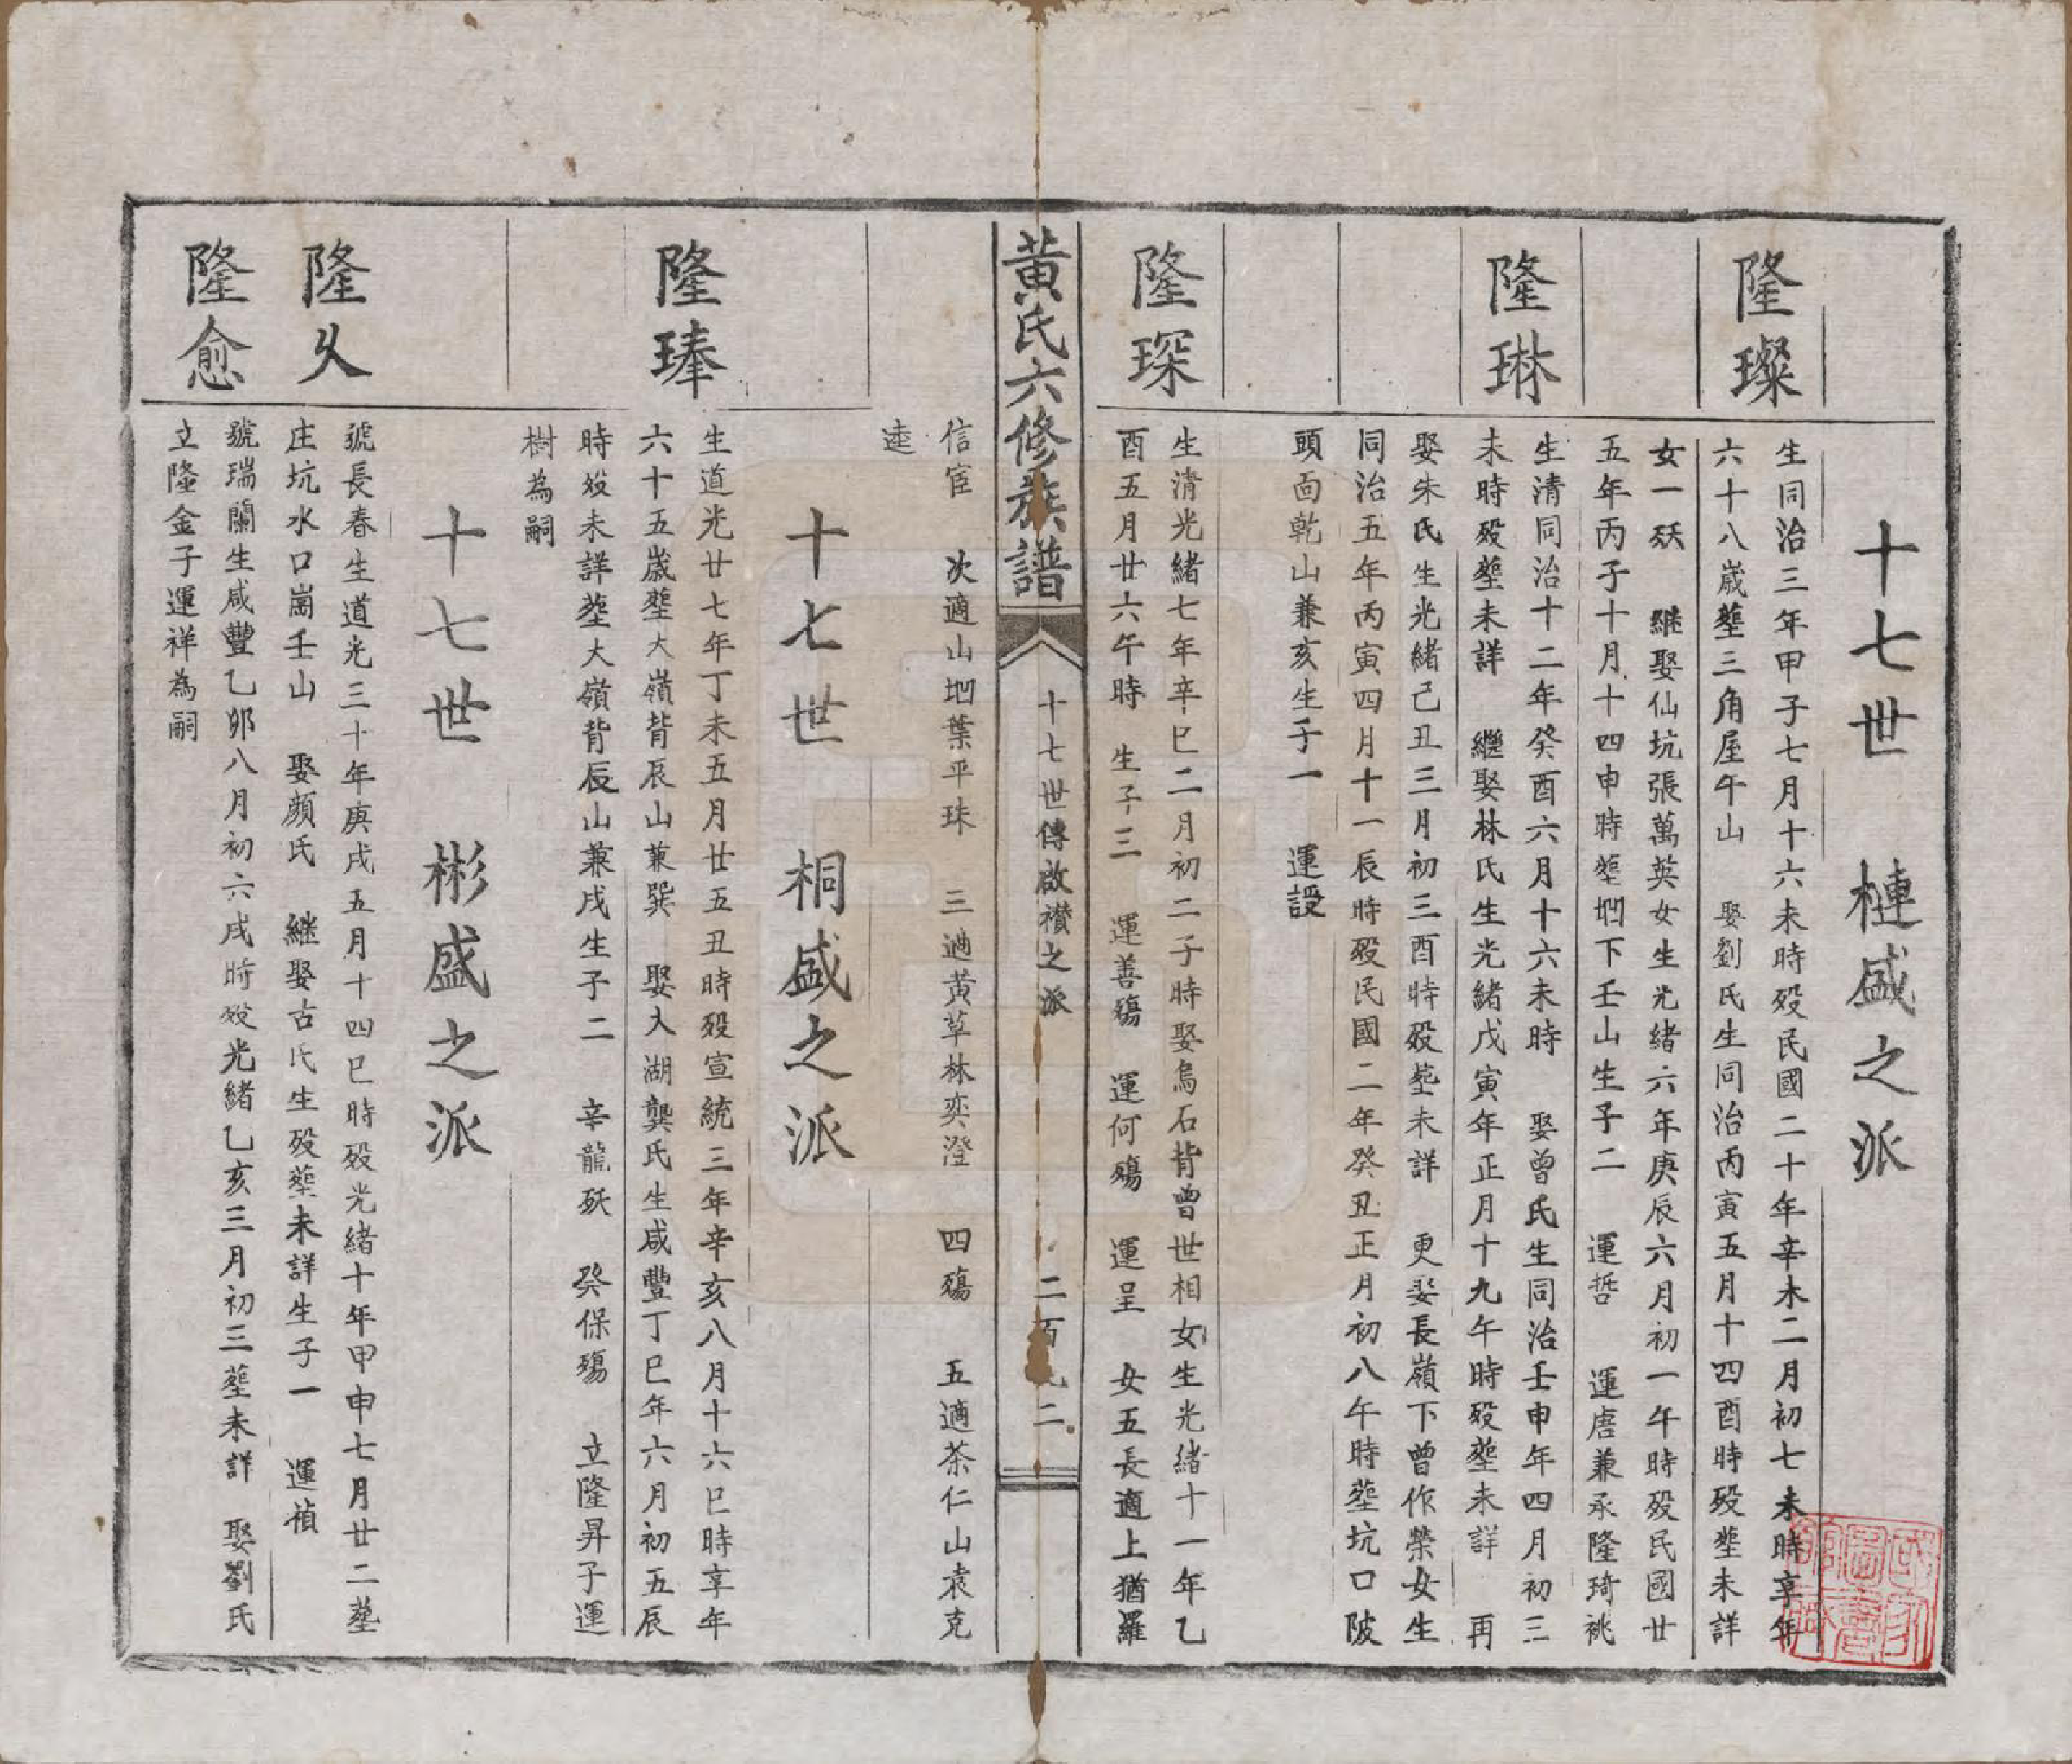 十七世 槤盛之派
隆璨
生同治三年甲子七月十六未時殁民國二十年辛未二月初七未時享年
六十八嵗塟三角屋午山 娶劉氏生同治丙寅五月十四酉時殁塟未詳
女一殀 繼娶仙坑張萬英女生光緒六年庚辰六月初一午時殁民國廿
五年丙子十月十四申時塟垇下壬山生子二 運哲 運唐兼承隆琦祧
隆琳
生清同治十二年癸酉六月十六未時 娶曾氏生同治壬申年四月初三
未時殁塟未詳 繼娶林氏生光緒戊寅年正月十九午時殁塟未詳 再
娶朱氏生光緒己丑三月初三酉時殁塟未詳 更娶長嶺下曾作榮女生
同治五年丙寅四月十一辰時殁民國二年癸丑正月初八午時塟坑口陂
頭面乾山兼亥生子一 運設
隆琛
生清光緒七年辛巳二月初二子時娶烏石背曾世相女生光緒十一年乙
酉五月廿六午時 生子三 運善殤 運何殤 運呈 女五長適上猶羅
黃氏六修族譜
十七世傳啟禶之派
二百 二
信宦 次適山垇葉平珠 三適黃草林奕澄 四殤 五適茶仁山袁克
逵
十七世 桐盛之派
隆琫
生道光廿七年丁未五月廿五丑時殁宣統三年辛亥八月十六巳時享年
六十五嵗塟大嶺背辰山兼巽 娶大湖龔氏生咸豐丁巳年六月初五辰
時殁未詳塟大嶺背辰山兼戌生子二 辛龍殀 癸保殤 立隆昇子運
樹為嗣
十七世 彬盛之派
隆久
號長春生道光三十年庚戌五月十四巳時殁光緒十年甲申七月廿二塟
庄坑水口崗壬山 娶顏氏 繼娶古氏生殁塟未詳生子一 運禎
隆愈
號瑞蘭生咸豐乙卯八月初六戌時殁光緒乙亥三月初三塟未詳 娶劉氏
立隆金子運祥為嗣